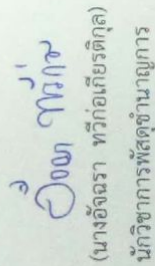 (นางอัจฉรา ทวีก่อเกียรติกุล)
นักวิชาการพัสดุชำนาญการ